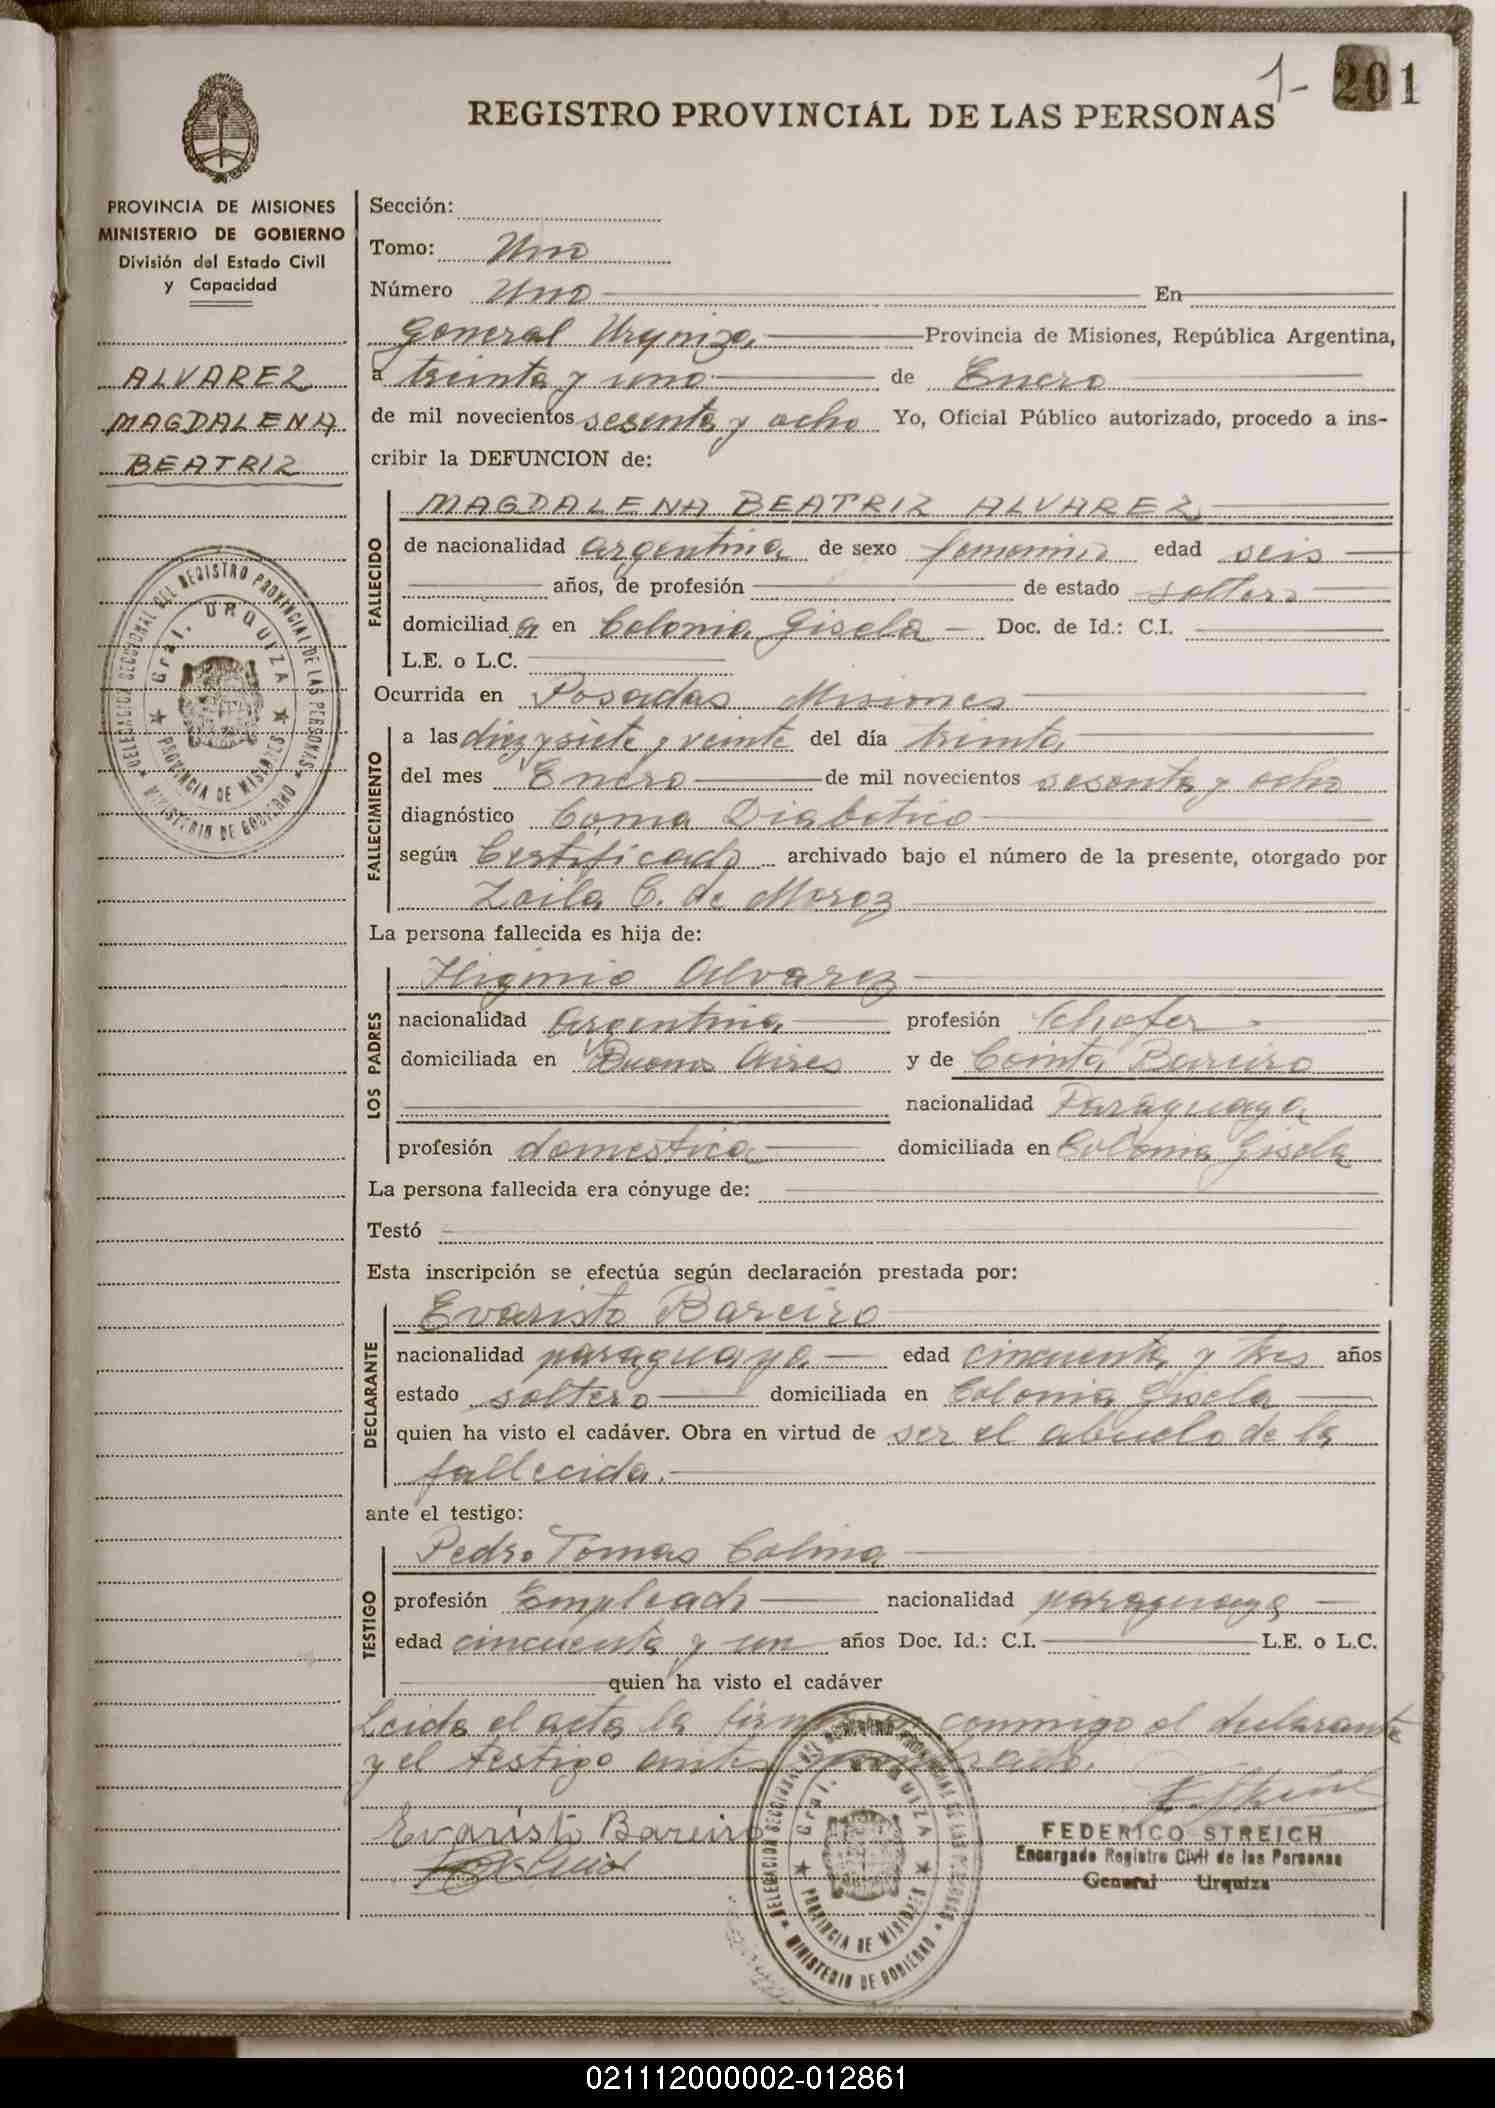 1- 201
REGISTRO PROVINCIAL DE LAS PERSONAS
PROVINCIA DE MISIONES
MINISTERIO DE GOBIERNO
División del Estado Civil
y Capacidad
ALVAREZ
MAGDALENA
BEATRIZ
DELEGACION SECCIONAL DEL REGISTRO PROVINCIAL DE LAS PERSONAS
Gral. URQUIZA
PROVINCIA DE MISIONES
MINISTERIO DE GOBIERNO
Sección:
Tomo: Uno
Número Uno En
General Urquiza Provincia de Misiones, República Argentina,
a treinta y uno de Enero
de mil novecientos sesenta y ocho Yo, Oficial Público autorizado, procedo a ins-
cribir la DEFUNCION de:
FALLECIDO
MAGDALENA BEATRIZ ALVAREZ
de nacionalidad argentina de sexo femenino edad seis
años, de profesión de estado soltera
domiciliad a en Colonia Gisela Doc. de Id.: C.I.
L.E. o L.C.
Ocurrida en Posadas Misiones
FALLECIMIENTO
a las diez y siete y veinte del día treinta
del mes Enero de mil novecientos sesenta y ocho
diagnóstico Coma Diabetico
según Certificado archivado bajo el número de la presente, otorgado por
Zoila C. de Moroz
La persona fallecida es hija de:
LOS PADRES
Higinio Alvarez
nacionalidad Argentina profesión Chofer
domiciliada en Buenos Aires y de Cointa Bareiro
nacionalidad Paraguaya
profesión domestica domiciliada en Colonia Gisela
La persona fallecida era cónyuge de:
Testó
Esta inscripción se efectúa según declaración prestada por:
DECLARANTE
Evaristo Bareiro
nacionalidad paraguaya edad cincuenta y tres años
estado soltero domiciliada en Colonia Gisela
quien ha visto el cadáver. Obra en virtud de ser el abuelo de la
fallecida.
ante el testigo:
TESTIGO
Pedro Tomas Colina
profesión Empleado nacionalidad paraguaya
edad cincuenta y un años Doc. Id.: C.I. L.E. o L.C.
quien ha visto el cadáver
Leida el acta la firman conmigo el declarante
y el testigo antes nombrado.
Evaristo Bareiro
DELEGACION SECCIONAL DEL REGISTRO PROVINCIAL DE LAS PERSONAS
Gral. URQUIZA
PROVINCIA DE MISIONES
MINISTERIO DE GOBIERNO
FEDERICO STREICH
Encargado Registro Civil de las Personas
General Urquiza
021112000002-012861